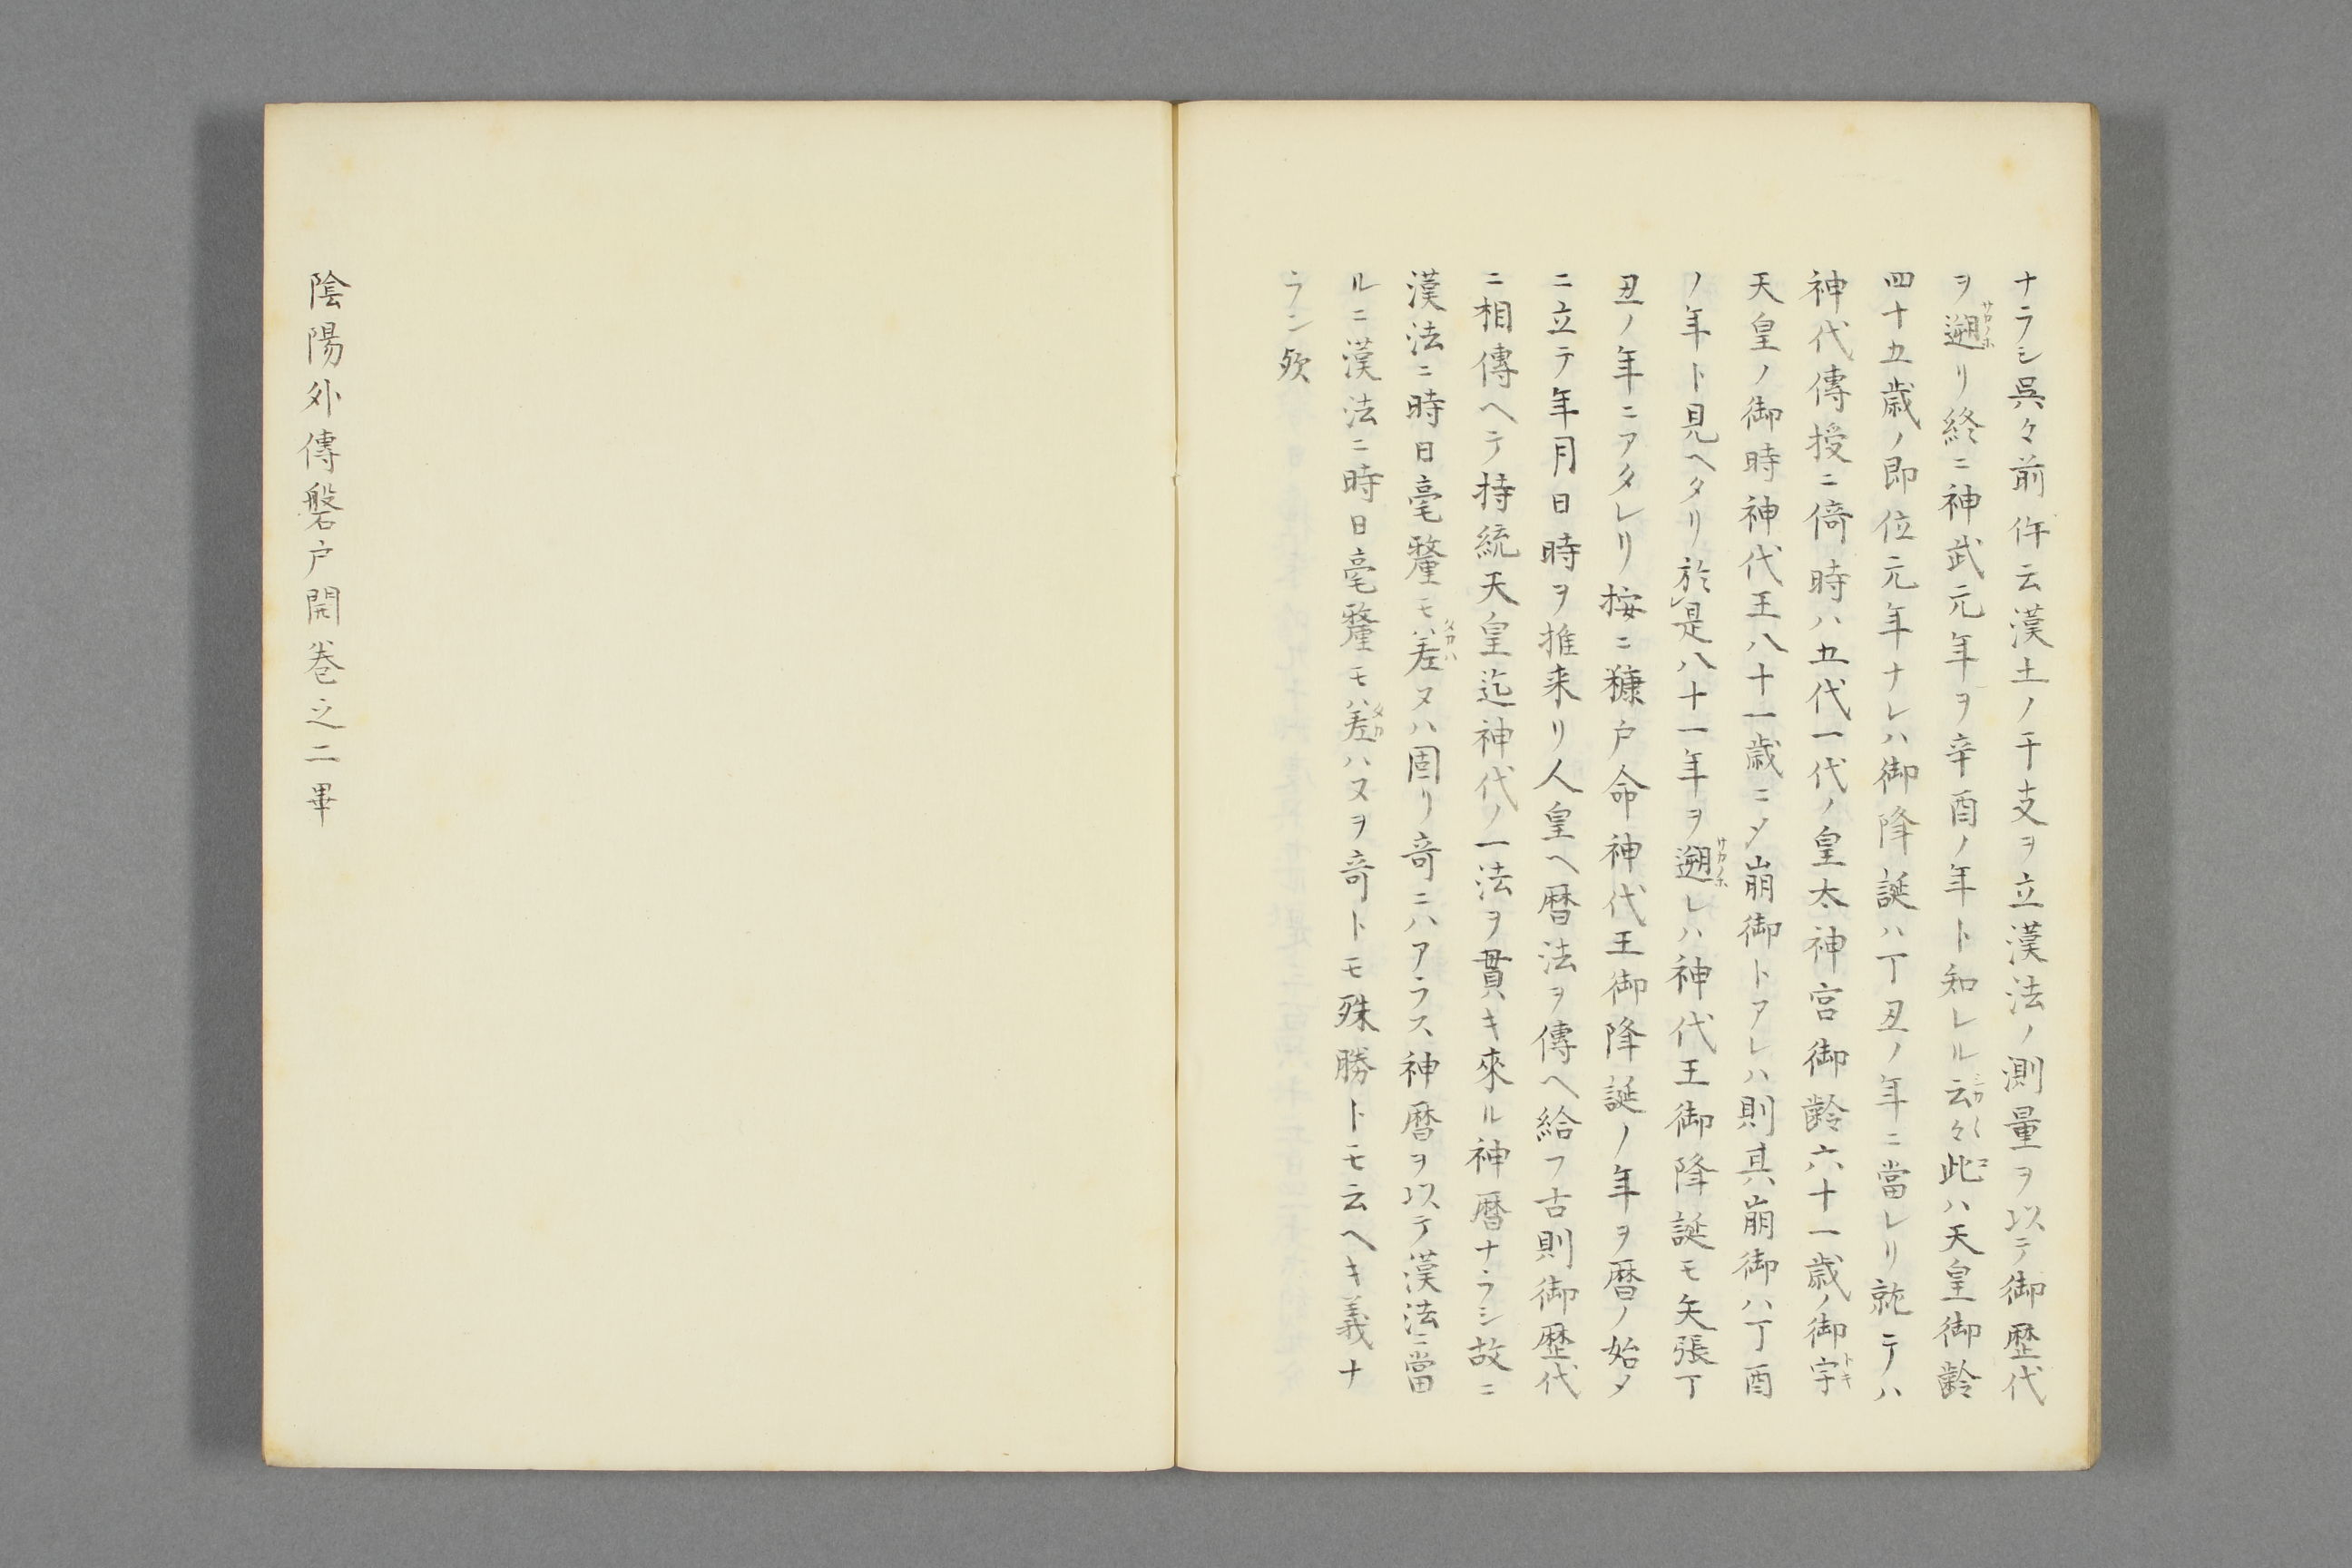 ナラシ呉々前件云漢土ノ干支ヲ立漢法ノ測量ヲ以テ御歴代
ヲ遡リ終ニ神武元年ヲ辛酉ノ年ト知レル云々此ハ天皇御齢
四十五歳ノ即位元年ナレハ御降誕ハ丁丑ノ年ニ當レリ就テハ
神代傳授ニ倚時ハ五代一代ノ皇太神宮御齢六十一歳ノ御宇
天皇ノ御時神代王八十一歳ニ〆崩御トアレハ則其崩御ハ丁酉
ノ年ト見ヘタリ於是八十一年ヲ遡レハ神代王御降誕モ矢張丁
丑ノ年ニアタレリ按ニ糠戸命神代王御降誕ノ年ヲ暦ノ始メ
ニ立テ年月日時ヲ推来リ人皇ヘ暦法ヲ傳ヘ給フ古則御歴代
ニ相傳ヘテ持統天皇迄神代ノ一法ヲ貫キ來ル神暦ナラシ故ニ
漢法ニ時日毫釐モ差ヌハ固リ竒ニハアラス神暦ヲ以テ漢法ニ當
ルニ漢法ニ時日毫釐モ差ハヌヲ竒トモ殊勝トモ云ヘキ義ナ
ラン歟
陰陽外傳磐戸開巻之二畢